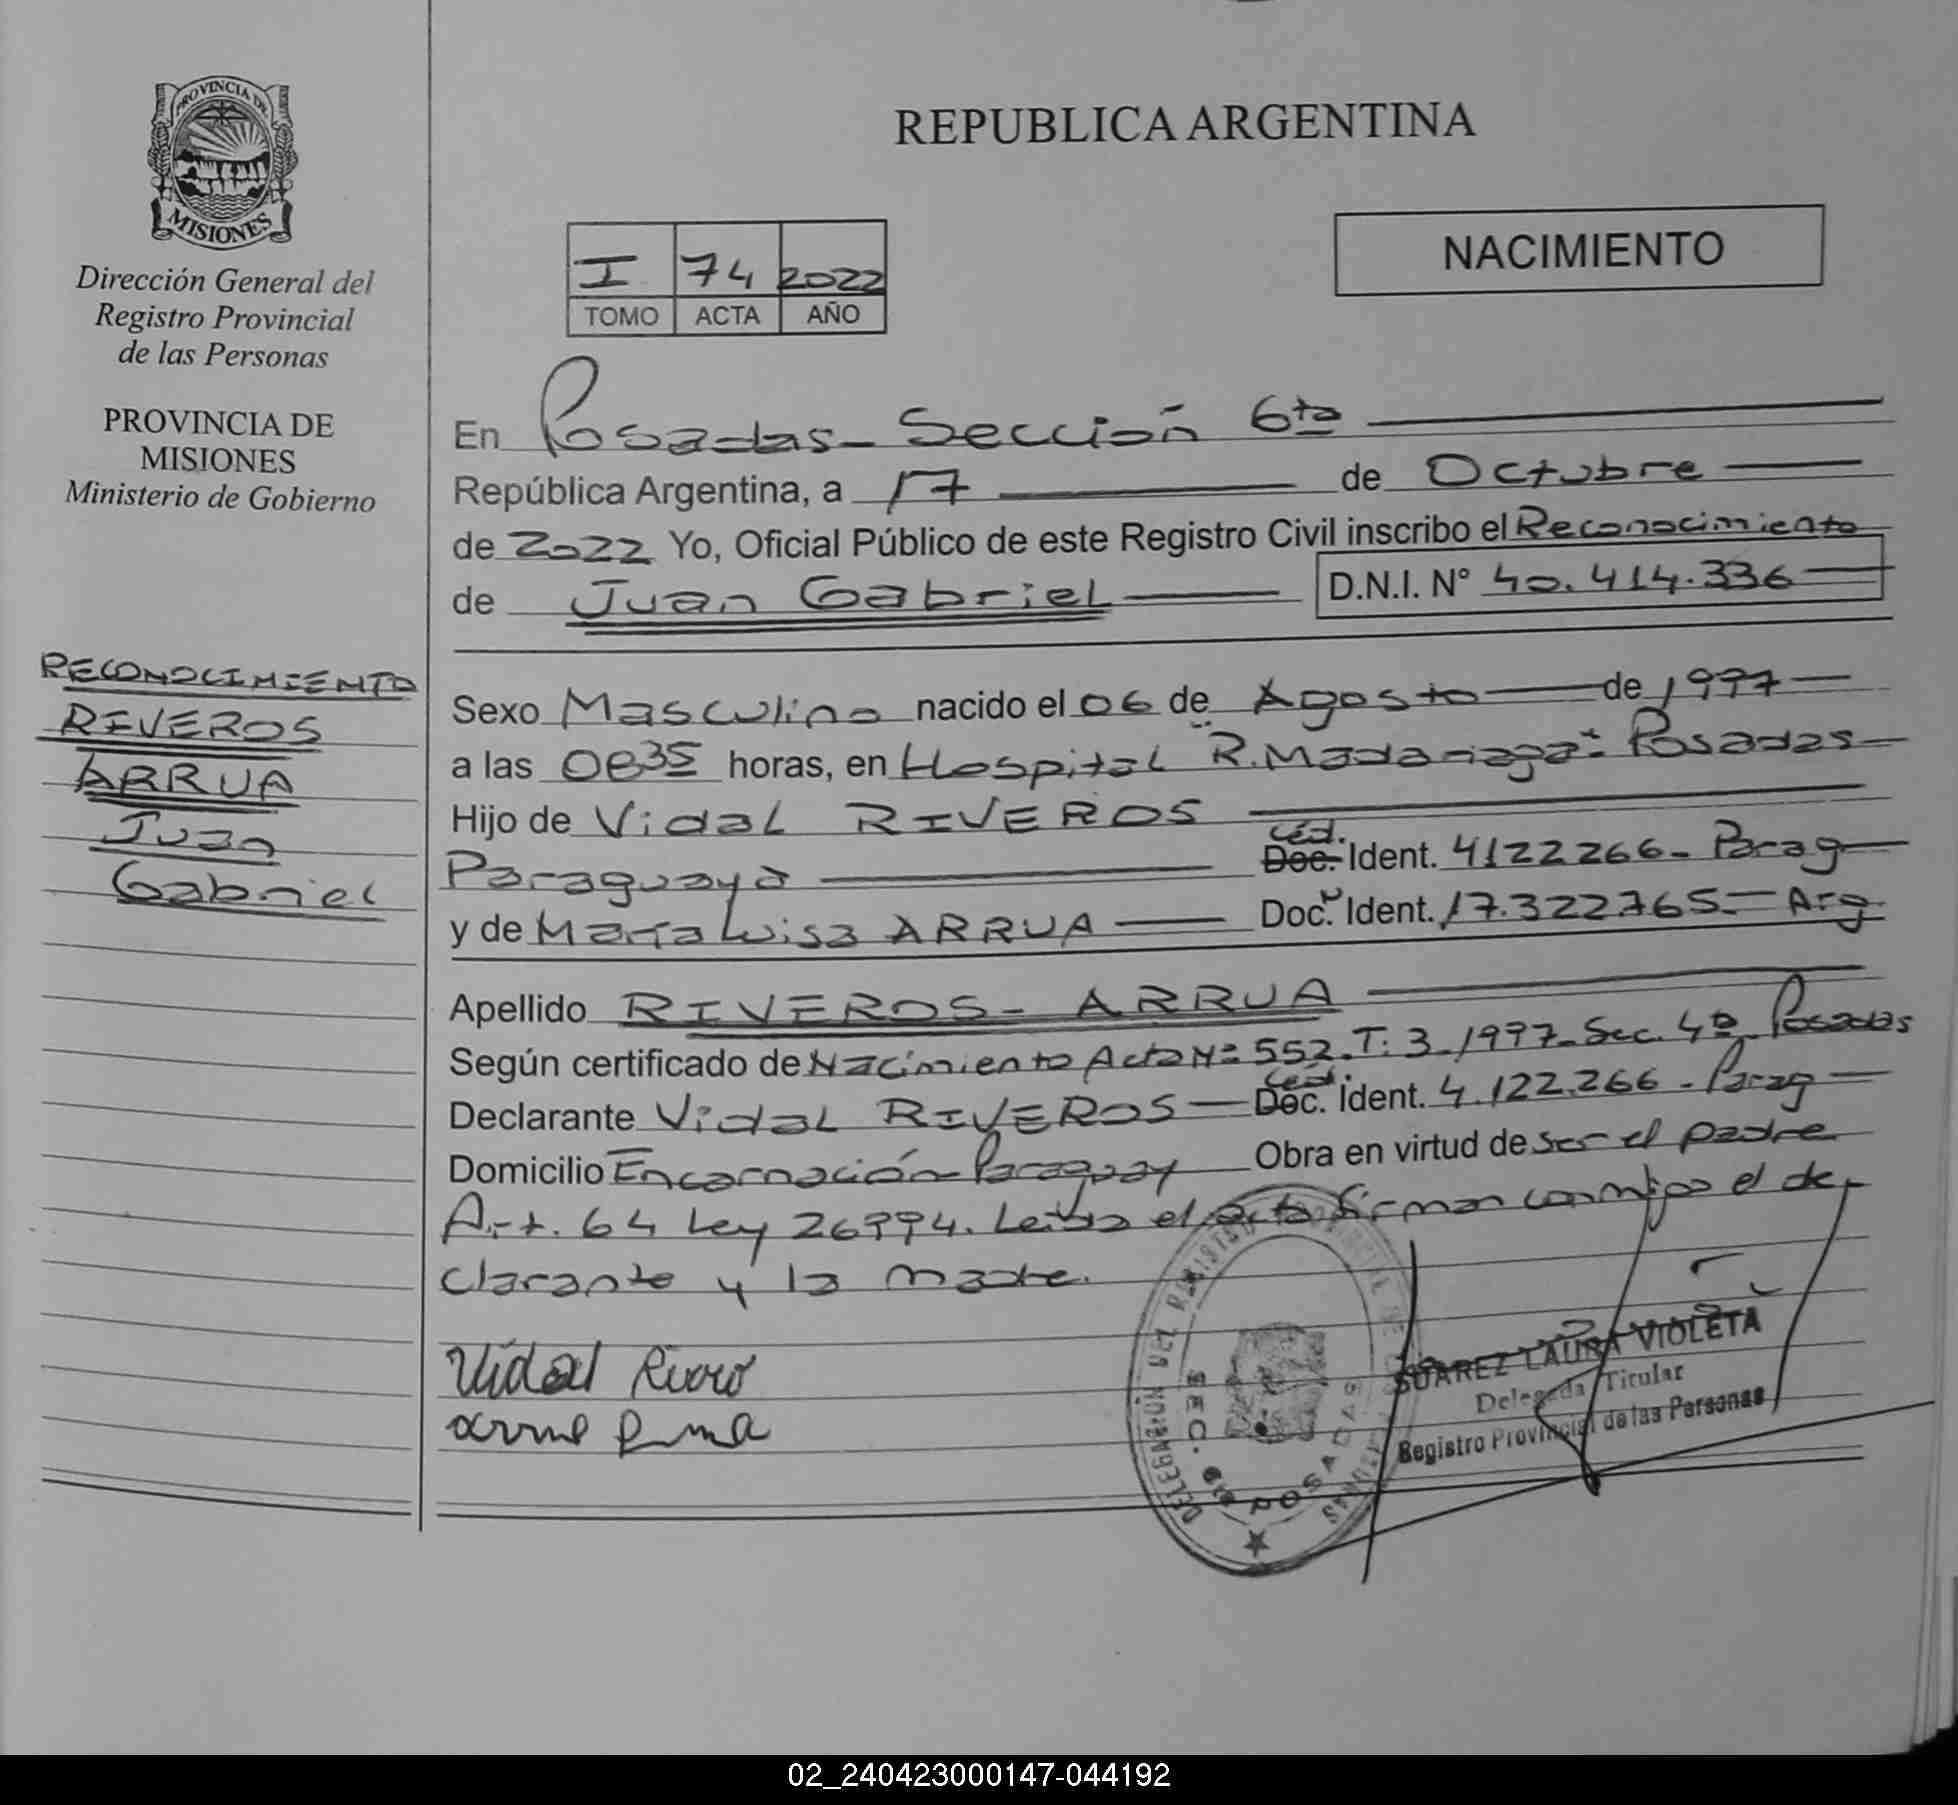 PROVINCIA DE
MISIONES
Dirección General del
Registro Provincial
de las Personas
PROVINCIA DE
MISIONES
Ministerio de Gobierno
RECONOCIMIENTO
RIVEROS
ARRUA
Juan
Gabriel
REPUBLICA ARGENTINA
I 74 2022
TOMO ACTA AÑO
NACIMIENTO
En Posadas - Sección 6ta
República Argentina, a 17 de Octubre
de 2022 Yo, Oficial Público de este Registro Civil inscribo el Reconocimiento
de Juan Gabriel D.N.I. N° 40.414.336
Sexo Masculino nacido el 06 de Agosto de 1997
a las 0835 horas, en Hospital "R. Madariaga" - Posadas
Hijo de Vidal RIVEROS
Paraguaya Céd. Doc. Ident. 4122266 - Parag
y de María Luisa ARRUA Doc. Ident. 17.322.765 - Arg
Apellido RIVEROS - ARRUA
Según certificado de Nacimiento Acta Nº 552. T: 3 - 1997 - Sec. 4ª Posadas
Declarante Vidal RIVEROS Céd. Doc. Ident. 4.122.266 - Parag
Domicilio Encarnación - Paraguay Obra en virtud de ser el padre
Art. 64 Ley 26994. Leída el acta firman conmigo el de-
clarante y la madre.
Vidal
DELEGACION DEL REGISTRO PROVINCIAL DE LAS PERSONAS
SEC. 6ta POSADAS
SUAREZ LAURA VIOLETA
Delegada Titular
Registro Provincial de las Personas
02_240423000147-044192